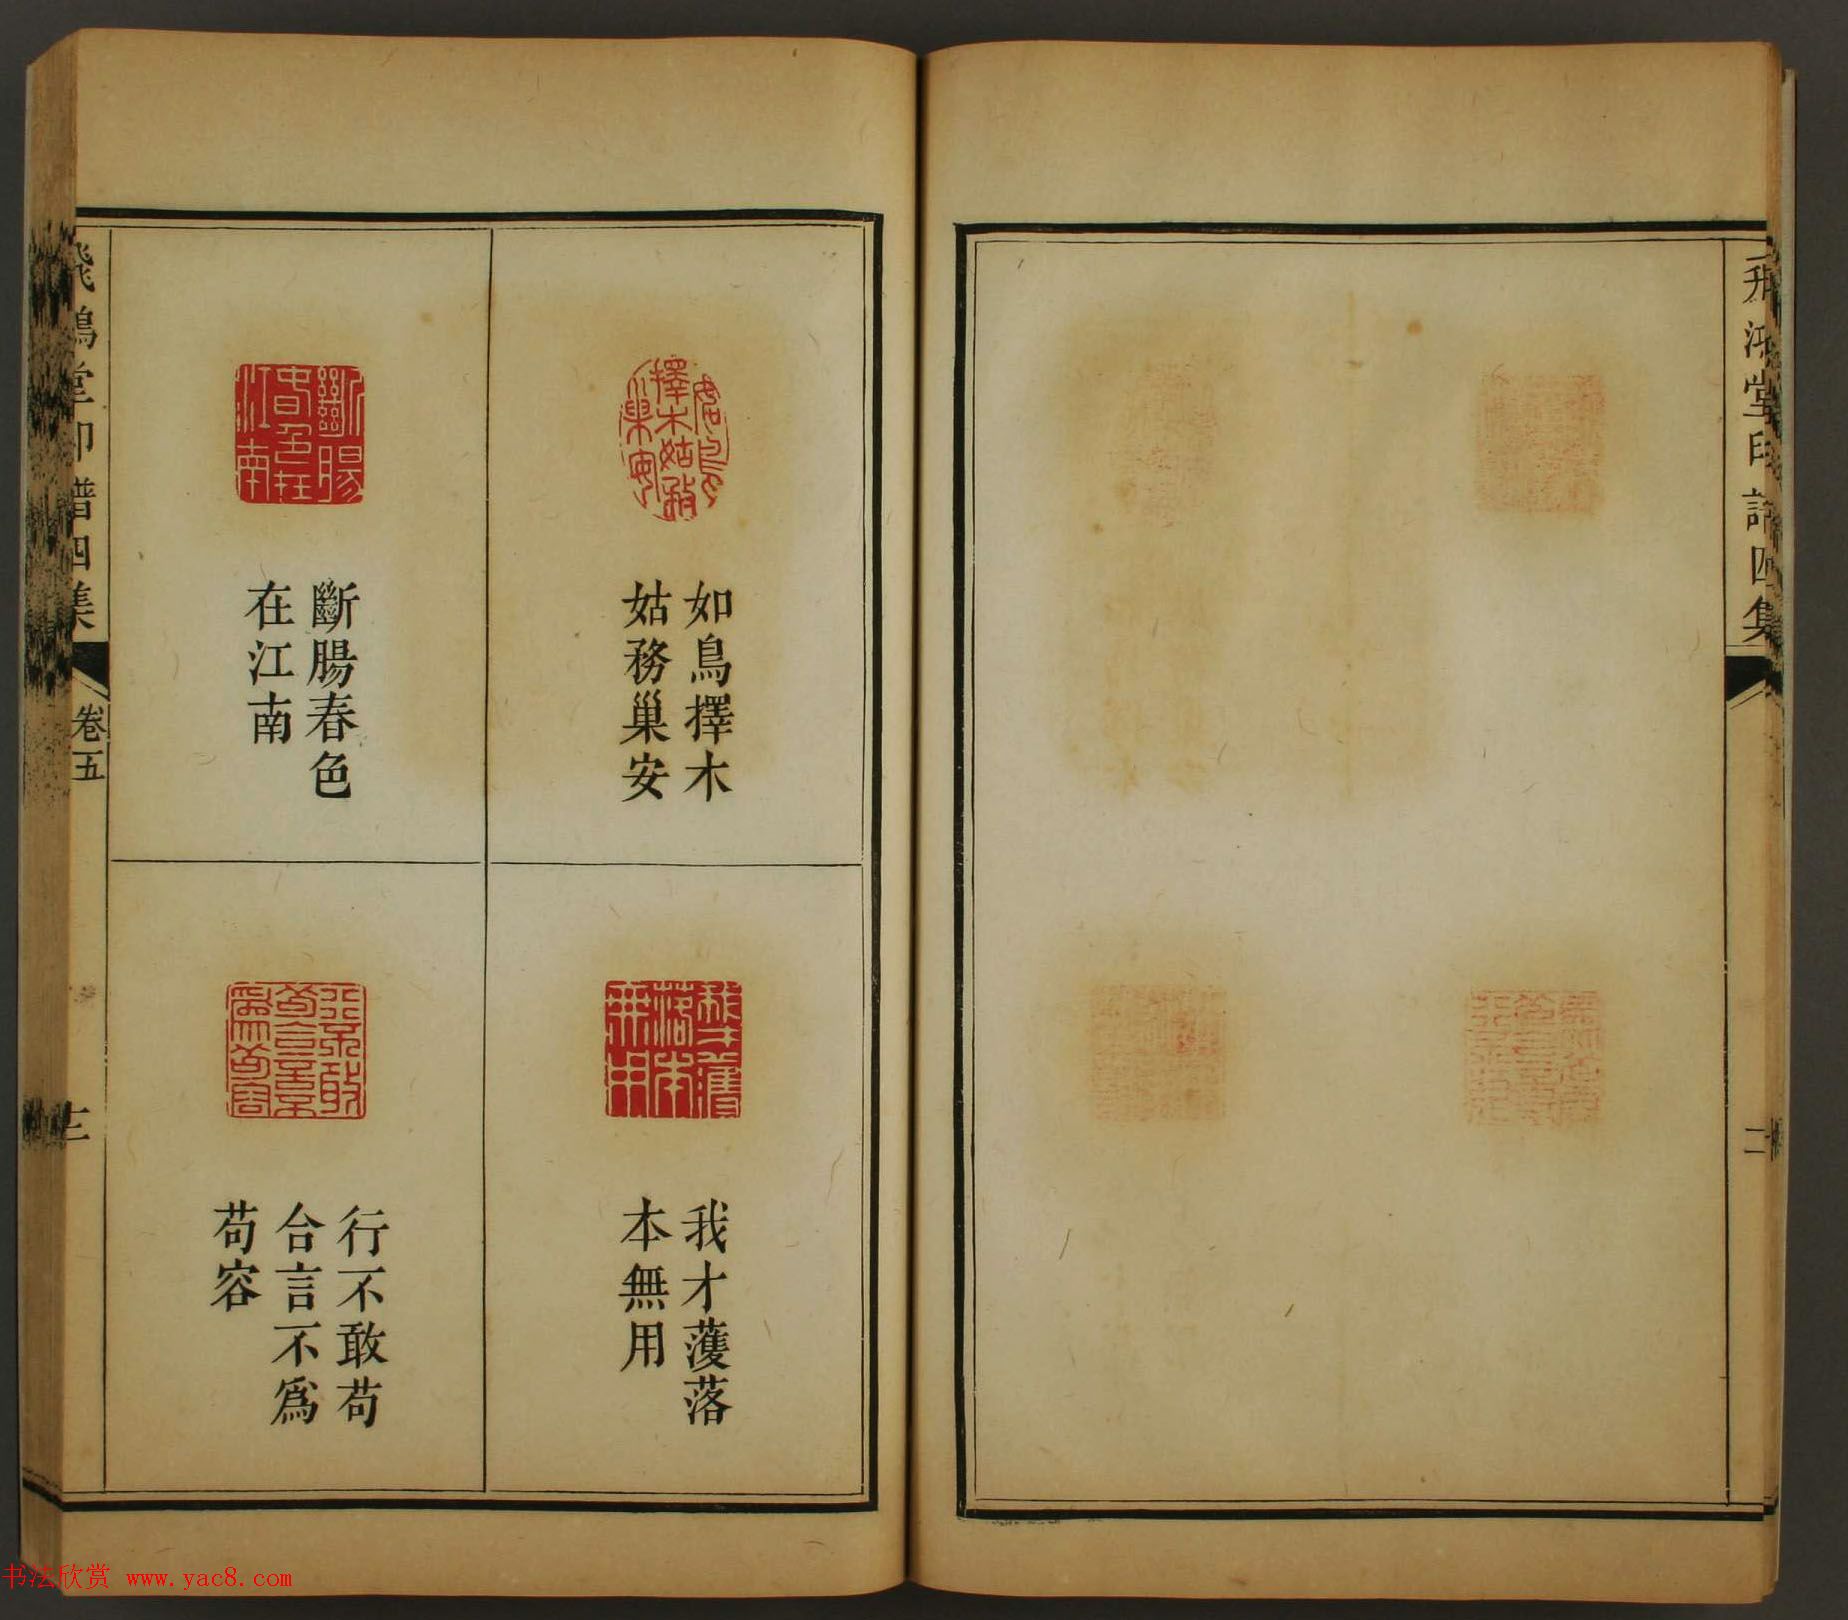 飛鴻堂印譜四集
二
如鳥擇木
姑務巢安
斷腸春色
在江南
我才蒦落
本無用
行不敢苟
合言不為
苟容
飛鴻堂印譜四集
卷五
書法欣赏 www.yac8.com